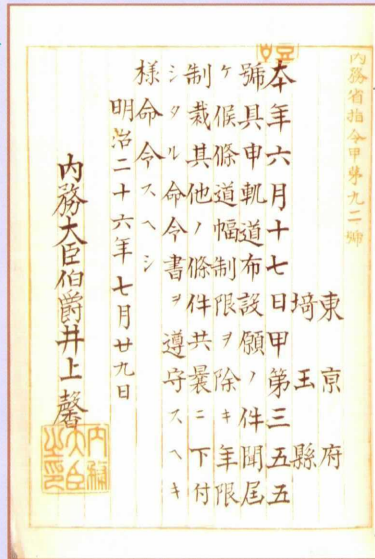 内務省指令甲第九二號
東京府
埼玉縣
本年六月十七日甲第三五五
號具申軌道布設願ノ件聞届
ケ候條道幅制限ヲ除キ年限
制裁其他ノ條件共曩ニ下付
シタル命令書ヲ遵守スヘキ
様命令スヘシ
明治二十六年七月廿九日
内務大臣伯爵井上馨
内務大臣之印